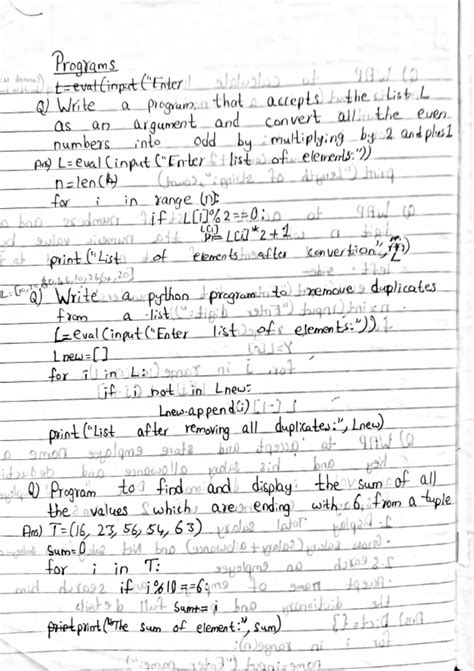 Programs
L=eval(input("Enter
Q) Write a program that accepts the List L
as an argument and convert all the even
numbers into odd by multiplying by 2 and plus 1
Ans) L=eval(input("Enter list of elements:"))
n=len(L)
for i in range (n):
if L[i]%2==0:
L[i]
= L[i]*2+1
print("List of elements after convertion", L)
Q) Write a python program to remove duplicates
from a list
L=eval(input("Enter list of elements:"))
Lnew=[]
for i in L:
if i not in Lnew:
Lnew.append(i)
print("List after removing all duplicates:", Lnew)
Q) Program to find and display the sum of all
the values which are ending with 6, from a tuple
Ans) T=(16, 23, 56, 54, 63)
Sum=0
for i in T:
if i%10==6:
Sum+=i
print print("The sum of element:", sum)